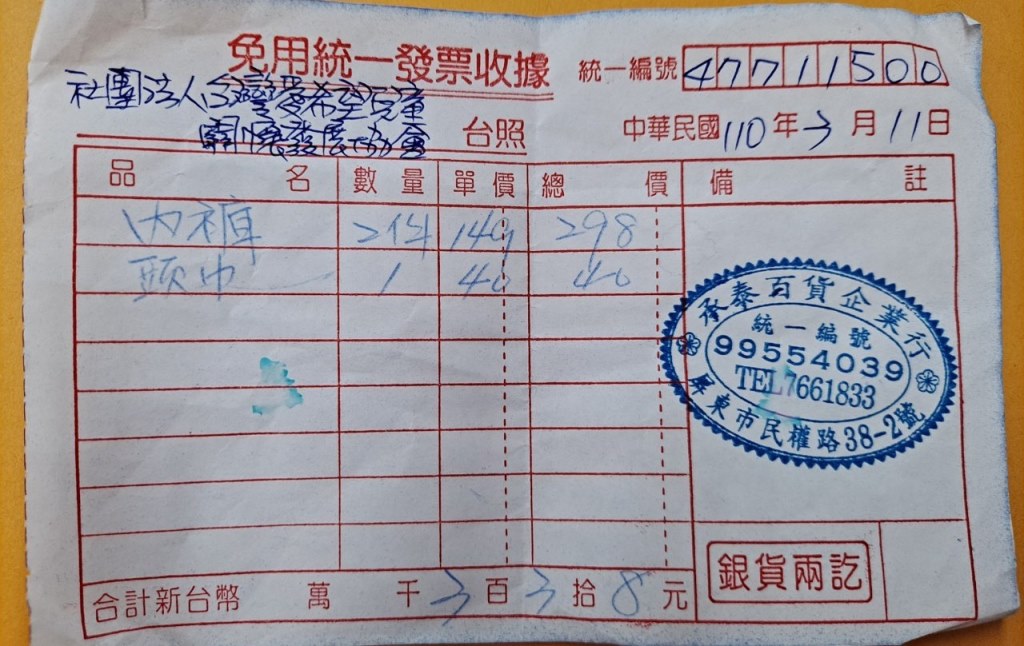 免用統一發票收據
統一編號 47711500
社團法人台灣愛希望兒童
關懷發展協會 台照
中華民國 110 年 3 月 11 日
品名 數量 單價 總價 備註
內褲 2件 149 298
頭巾 1 40 40
承泰百貨企業行
統一編號
99554039
TEL7661833
屏東市民權路38-2號
合計新台幣 萬 千 3 百 3 拾 8 元
銀貨兩訖